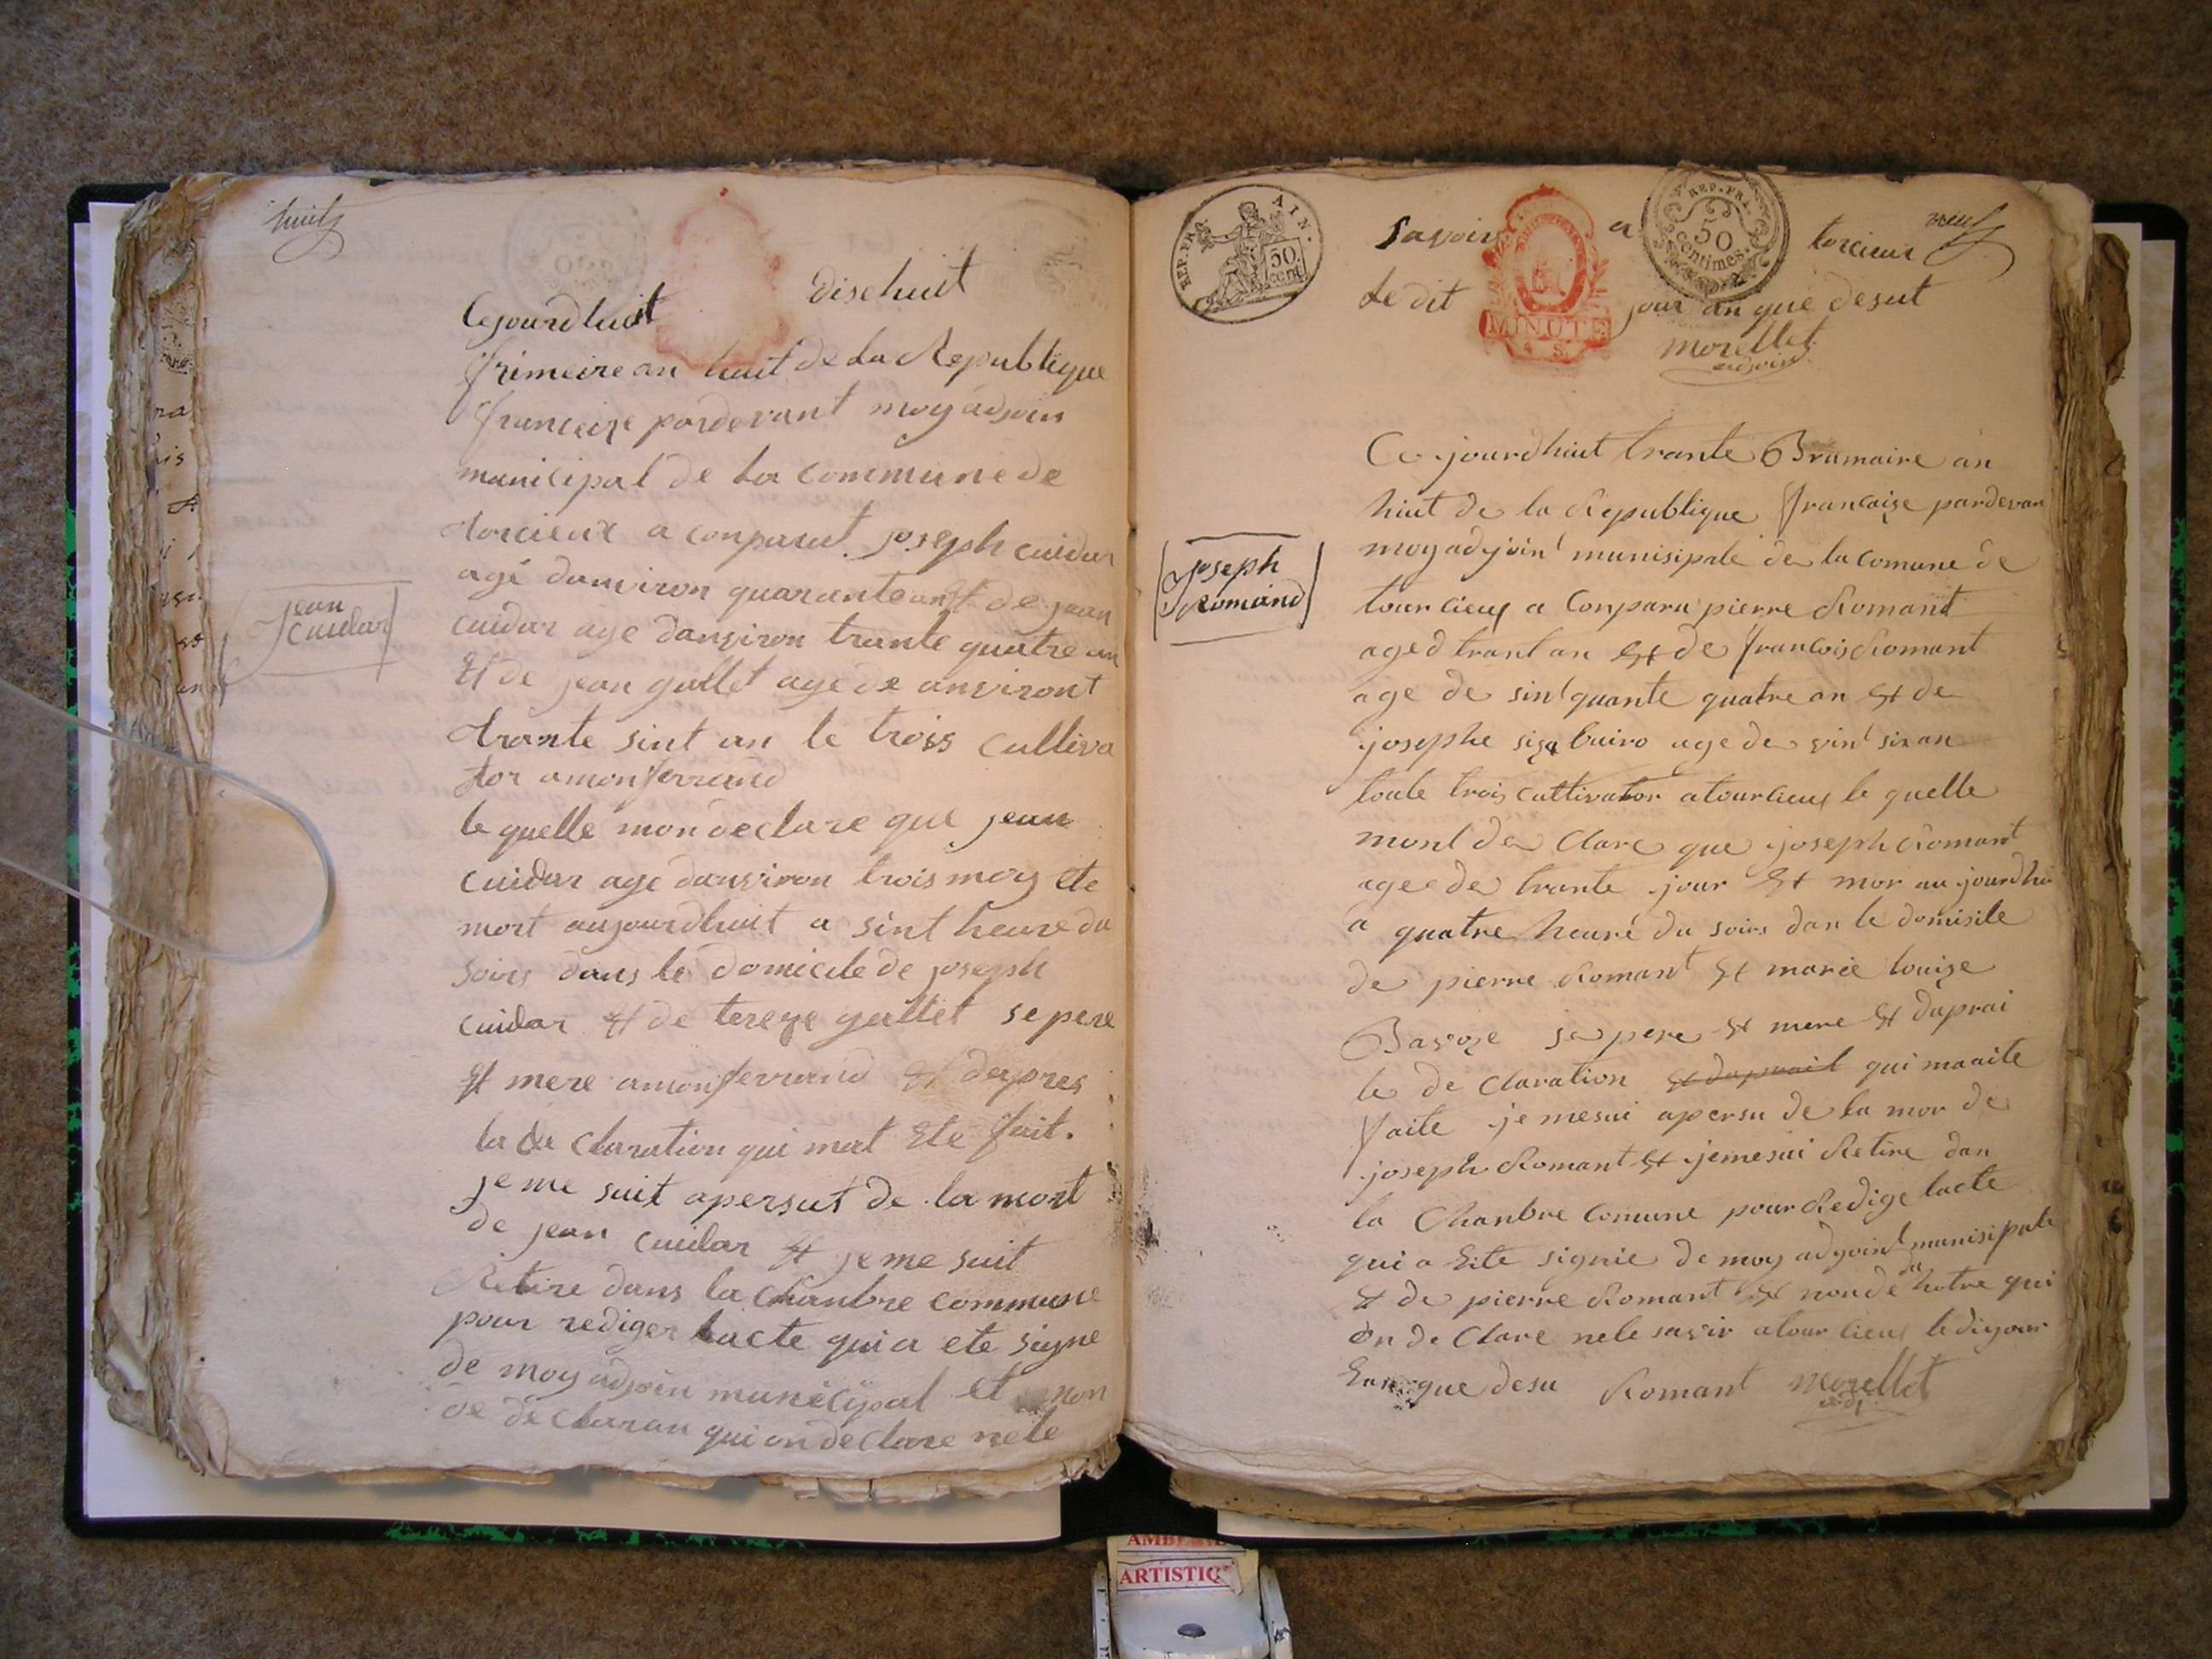 huit
Cejourdhuit dischuit
frimeire an huit de La Republique
franceize pardevant moy adjoin
municipal de La Commune de
torcieux a conparut joseph cuidar
agé danviron quarante ant et de jean
cuidar age danviron trante quatre an
Et de jean gullet age de anviront
trante sint an le trois cultiva
tor a monferrand
le quelle mon declare que jean
cuidar age danviron trois moy ete
mort aujourdhuit a sint heure du
soirs dans le domicile de joseph
cuidar et de tereze gullet se pere
Et mere a monferrand Et depres
la de Claration qui mat Ete fait.
je me suit apersut de la mort
de jean cuidar Et je me suit
Retire dans la Chanbre commune
pour rediger lacte qui a ete signe
de moy adjoin municipal et non
de declaran qui on declare nele
jean
cuidar
REP. FRA. AIN.
50
cent.
REP. FRA.
50
centimes.
MINUTE
4 S.
neuf
Savoirs a torcieux
Le dit jour an que desut
morellet
adjoin
Ce jourdhuit trante Brumaire an
huit de la Republique francaize pardevan
moy adjoint munisipale de la Comune de
tourcieux a Conparu pierre Romant
age d trant an Et de francois Romant
age de sintquante quatre an Et de
josephe age de vint six an
toute trois cultivator a tourcieux le quelle
mont de Clare que joseph Romant
age de trante jour Et mor au jourdhui
a quatre heure du soirs dan le domisile
de pierre Romant Et marie louize
Bavoze se pere Et mere Et daprai
le de Claration Et daprait qui ma aite
faite je mesui apersu de la mor de
joseph Romant Et jemesui Retire dan
la Chanbre Comune pour Redige lacte
qui a Ete signie de moy adjoint munisipale
Et de pierre Romant Et non de da hotre qui
on de Clare nele savir a tourcieux le dijour
Ean que desu Romant morellet
adj
Joseph
Romand
AMBERIE
ARTISTIQ